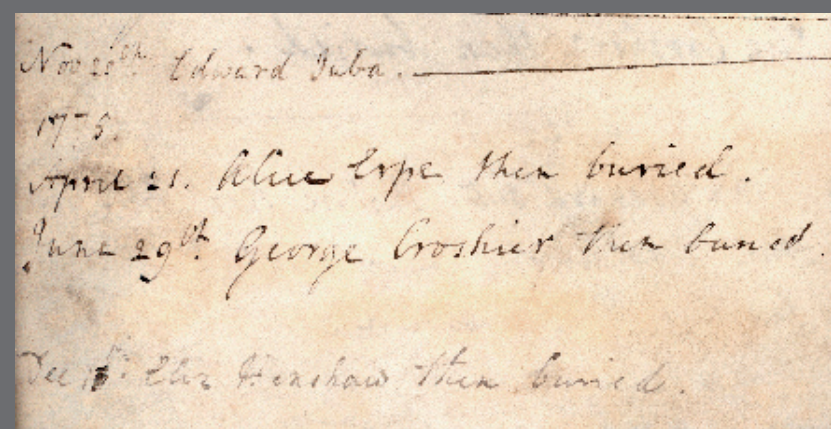 Nov 20th Edward Juba.
1775.
April 21. Alice Erpe then buried.
June 29th George Croshier then buried.
Dec Eliz Henshaw then buried.